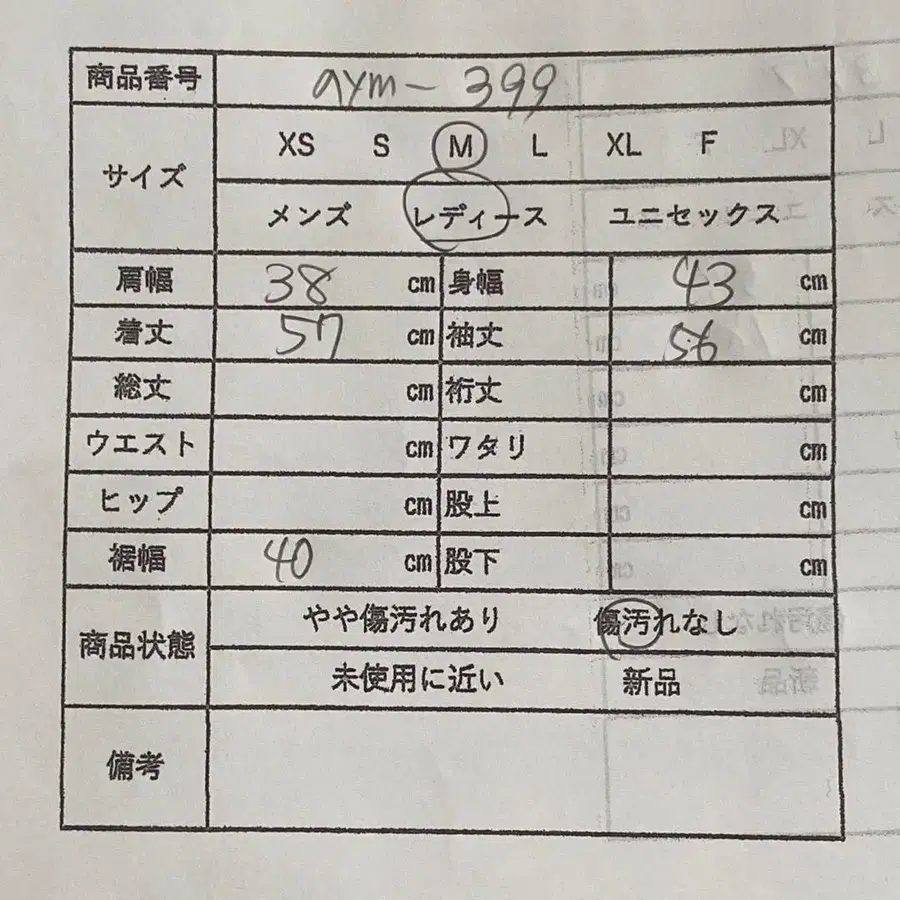 商品番号 aym-399
サイズ XS S M L XL F
メンズ レディース ユニセックス
肩幅 38 cm 身幅 43 cm
着丈 57 cm 袖丈 56 cm
総丈 cm 裄丈 cm
ウエスト cm ワタリ cm
ヒップ cm 股上 cm
裾幅 40 cm 股下 cm
商品状態 やや傷汚れあり 傷汚れなし
未使用に近い 新品
備考